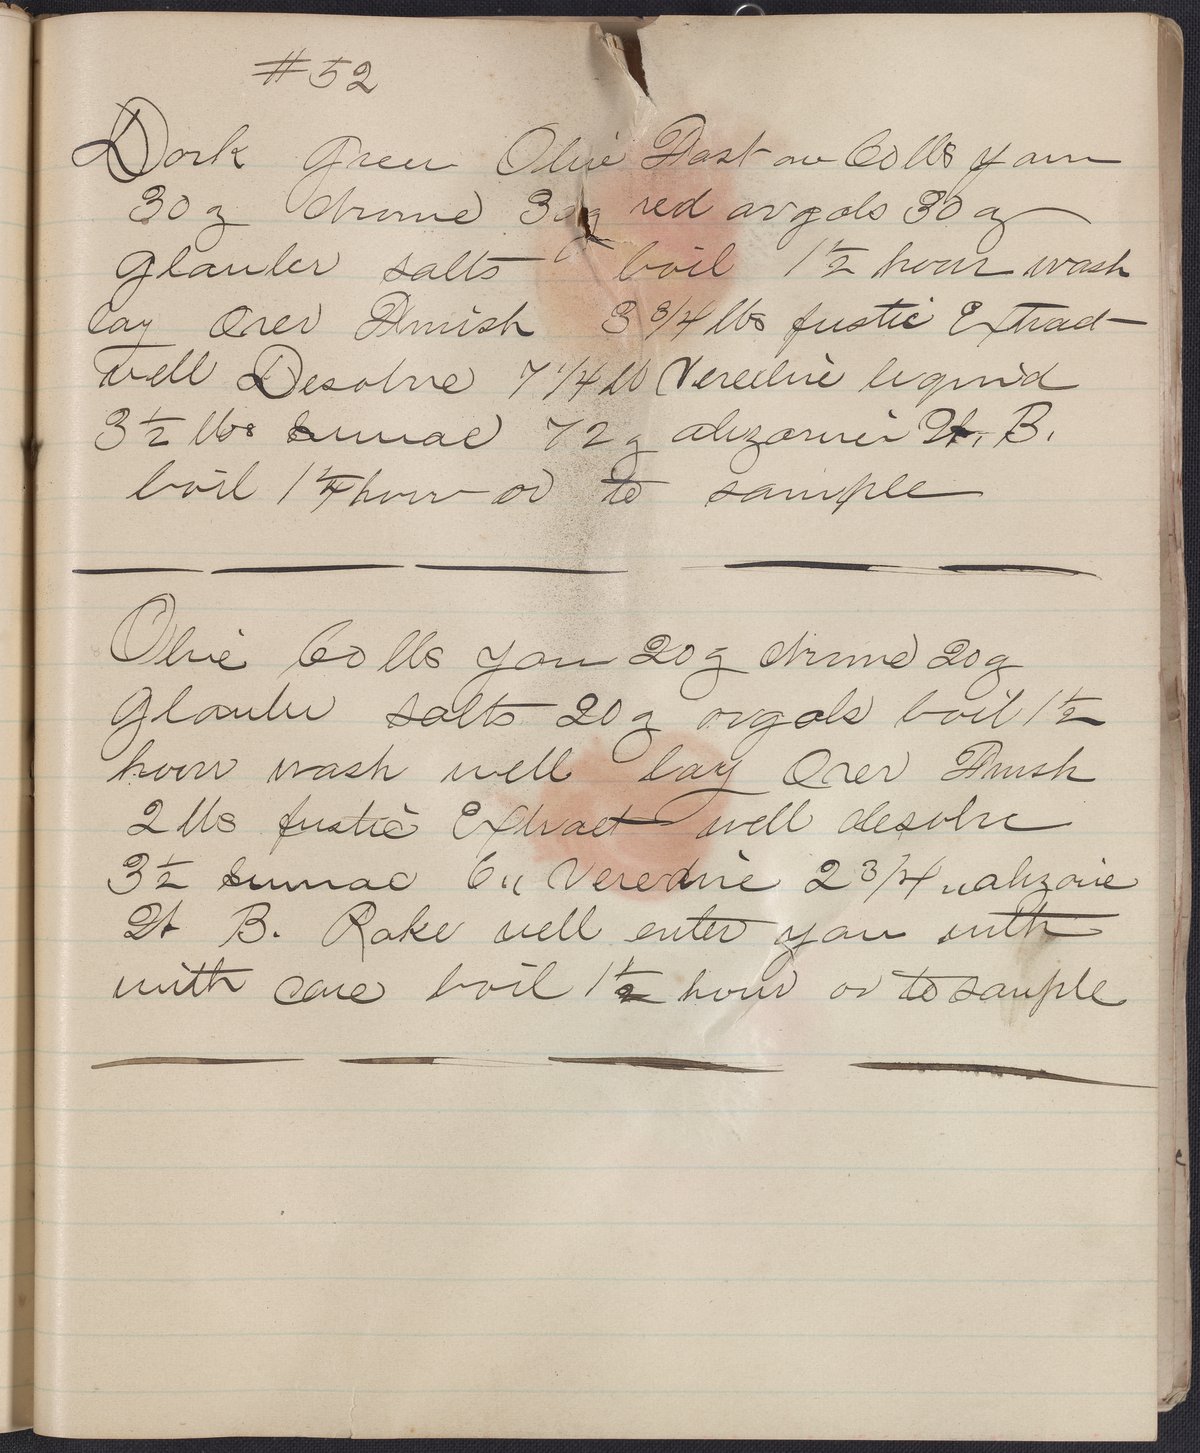 #52
Dark Green Olive Fast on 60 lbs yarn
30 g chrome 30 g red argols 30 g
Glauber salts boil 1 1/2 hour wash
lay Over Finish 3 3/4 lbs fustic Extract
well Desolve 7 1/4 lb Veredine liquid
3 1/2 lbs sumac 72 g alizarine W. B.
boil 1 1/4 hour or to sample
Olive 60 lbs yarn 20 g chrome 20 g
Glauber salts 20 g argols boil 1 1/2
hour wash well lay Over Finish
2 lbs fustic Extract well desolve
3 1/2 sumac 6 " Veredine 2 3/4 " alizarine
W B. Rake well enter yarn with
with care boil 1 1/2 hour or to sample